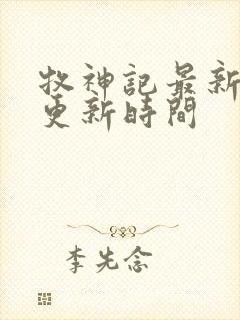 牧神記最新
更新時間
李先念